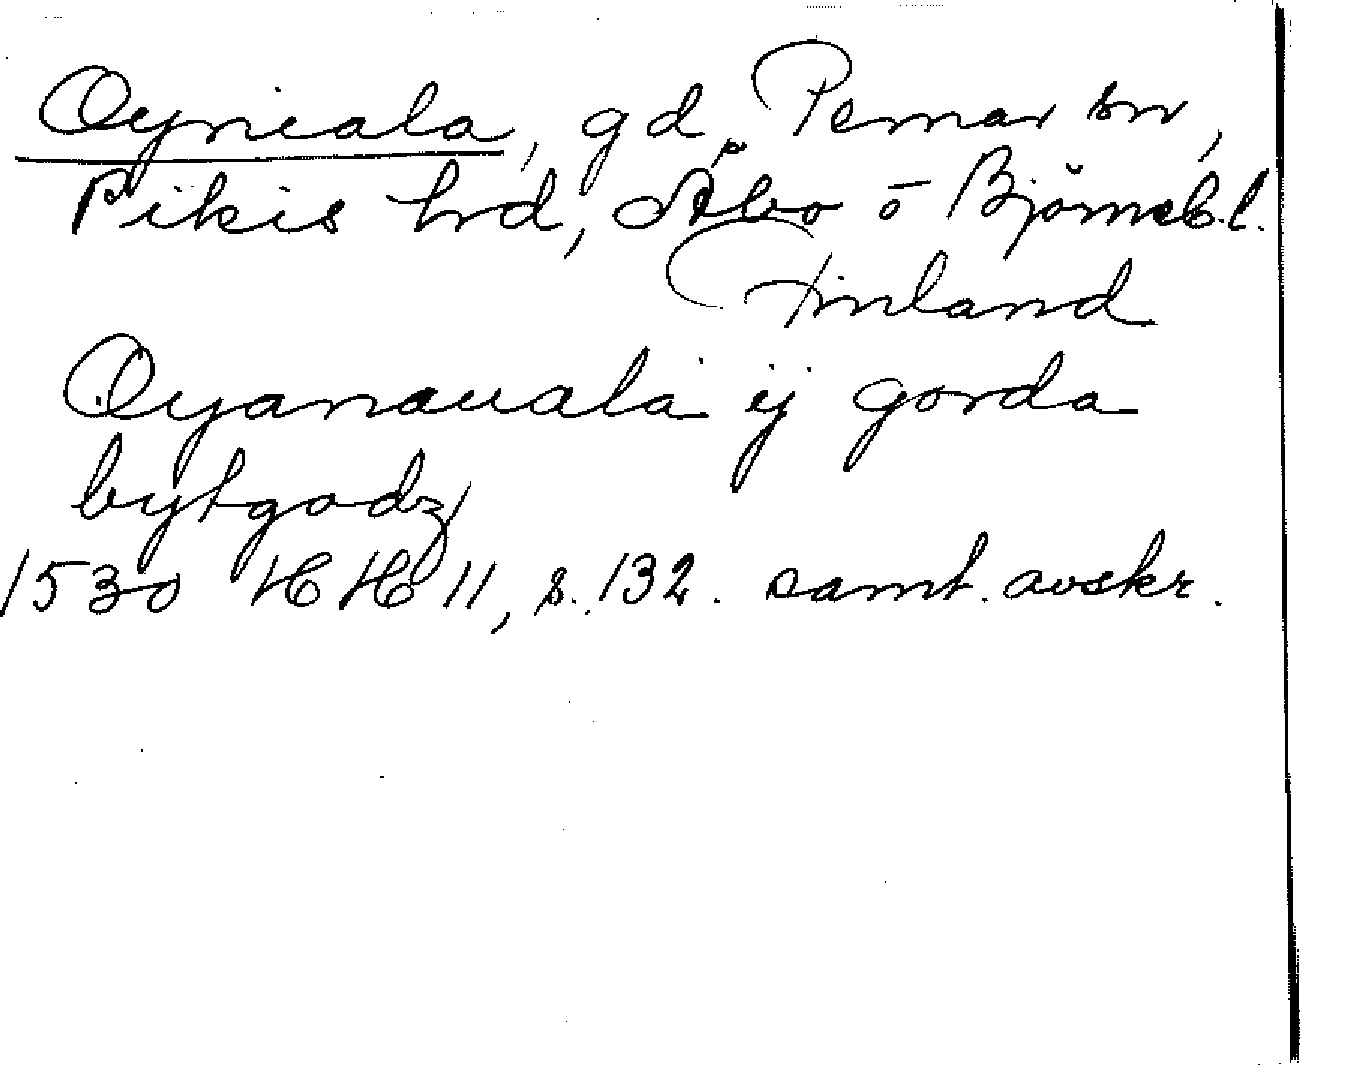 Oyniala, gd, Pemar sn,
Pikis hrd, Åbo ō Björneb.l.
Finland
Oyanauala ij gorda
bytgodz
1530 HH 11, s. 132. samt. avskr.